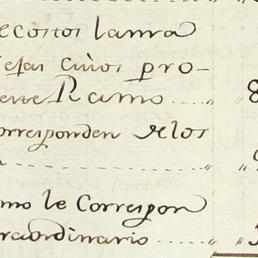 ecostos lama
esas cuios pro-
este Ramo .... " 8
correspondenelos
.......... "
mo le Correspon
traordinario ..... "